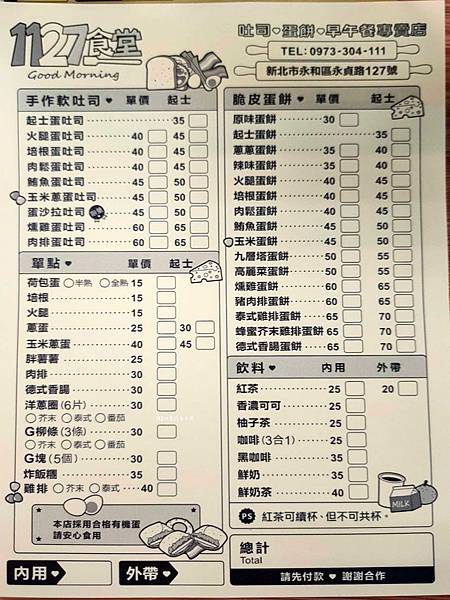 1127食堂
Good Morning
吐司♥蛋餅♥早午餐專賣店
TEL: 0973-304-111
新北市永和區永貞路127號
手作軟吐司♥ 單價 起士
起士蛋吐司 35
火腿蛋吐司 40 45
培根蛋吐司 40 45
肉鬆蛋吐司 45 50
鮪魚蛋吐司 45 50
玉米蔥蛋吐司 45 50
蛋沙拉吐司 45 50
燻雞蛋吐司 60 65
肉排蛋吐司 60 65
單點♥ 單價 起士
荷包蛋 ○半熟 ○全熟 15
培根 15
火腿 15
蔥蛋 25 30
玉米蔥蛋 40 45
胖薯薯 25
肉排 30
德式香腸 30
洋蔥圈(6片) 30
○芥末 ○泰式 ○番茄
G柳條(3條) 30
○芥末 ○泰式 ○番茄
G塊(5個) 30
炸飯糰 35
雞排 ○芥末 ○泰式 40
本店採用合格有機蛋
請安心食用
內用♥ 外帶♥
脆皮蛋餅♥ 單價 起士
原味蛋餅 30
起士蛋餅 35
蔥蔥蛋餅 35 40
辣味蛋餅 35 40
火腿蛋餅 40 45
培根蛋餅 40 45
肉鬆蛋餅 45 50
鮪魚蛋餅 45 50
玉米蛋餅 45 50
九層塔蛋餅 45 50
高麗菜蛋餅 45 50
燻雞蛋餅 60 65
豬肉排蛋餅 60 65
泰式雞排蛋餅 65 70
蜂蜜芥末雞排蛋餅 65 70
德式香腸蛋餅 65 70
飲料♥ 內用 外帶
紅茶 25 20
香濃可可 25
柚子茶 25
咖啡(3合1) 25
黑咖啡 35
鮮奶 35
鮮奶茶 40
MILK
PS 紅茶可續杯、但不可共杯。
總計
Total
請先付款♥謝謝合作